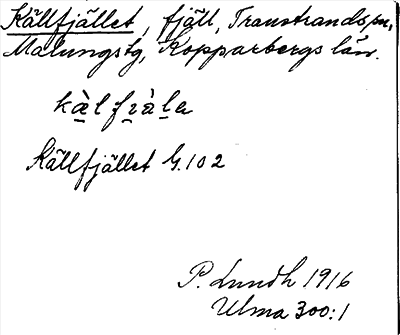 Källfjället, fjäll, Transtrands sn,
Malungs tg, Kopparbergs län.
kälfꞅälɐ
Källfjället G.102
P. Lundh 1916
Ulma 300:1